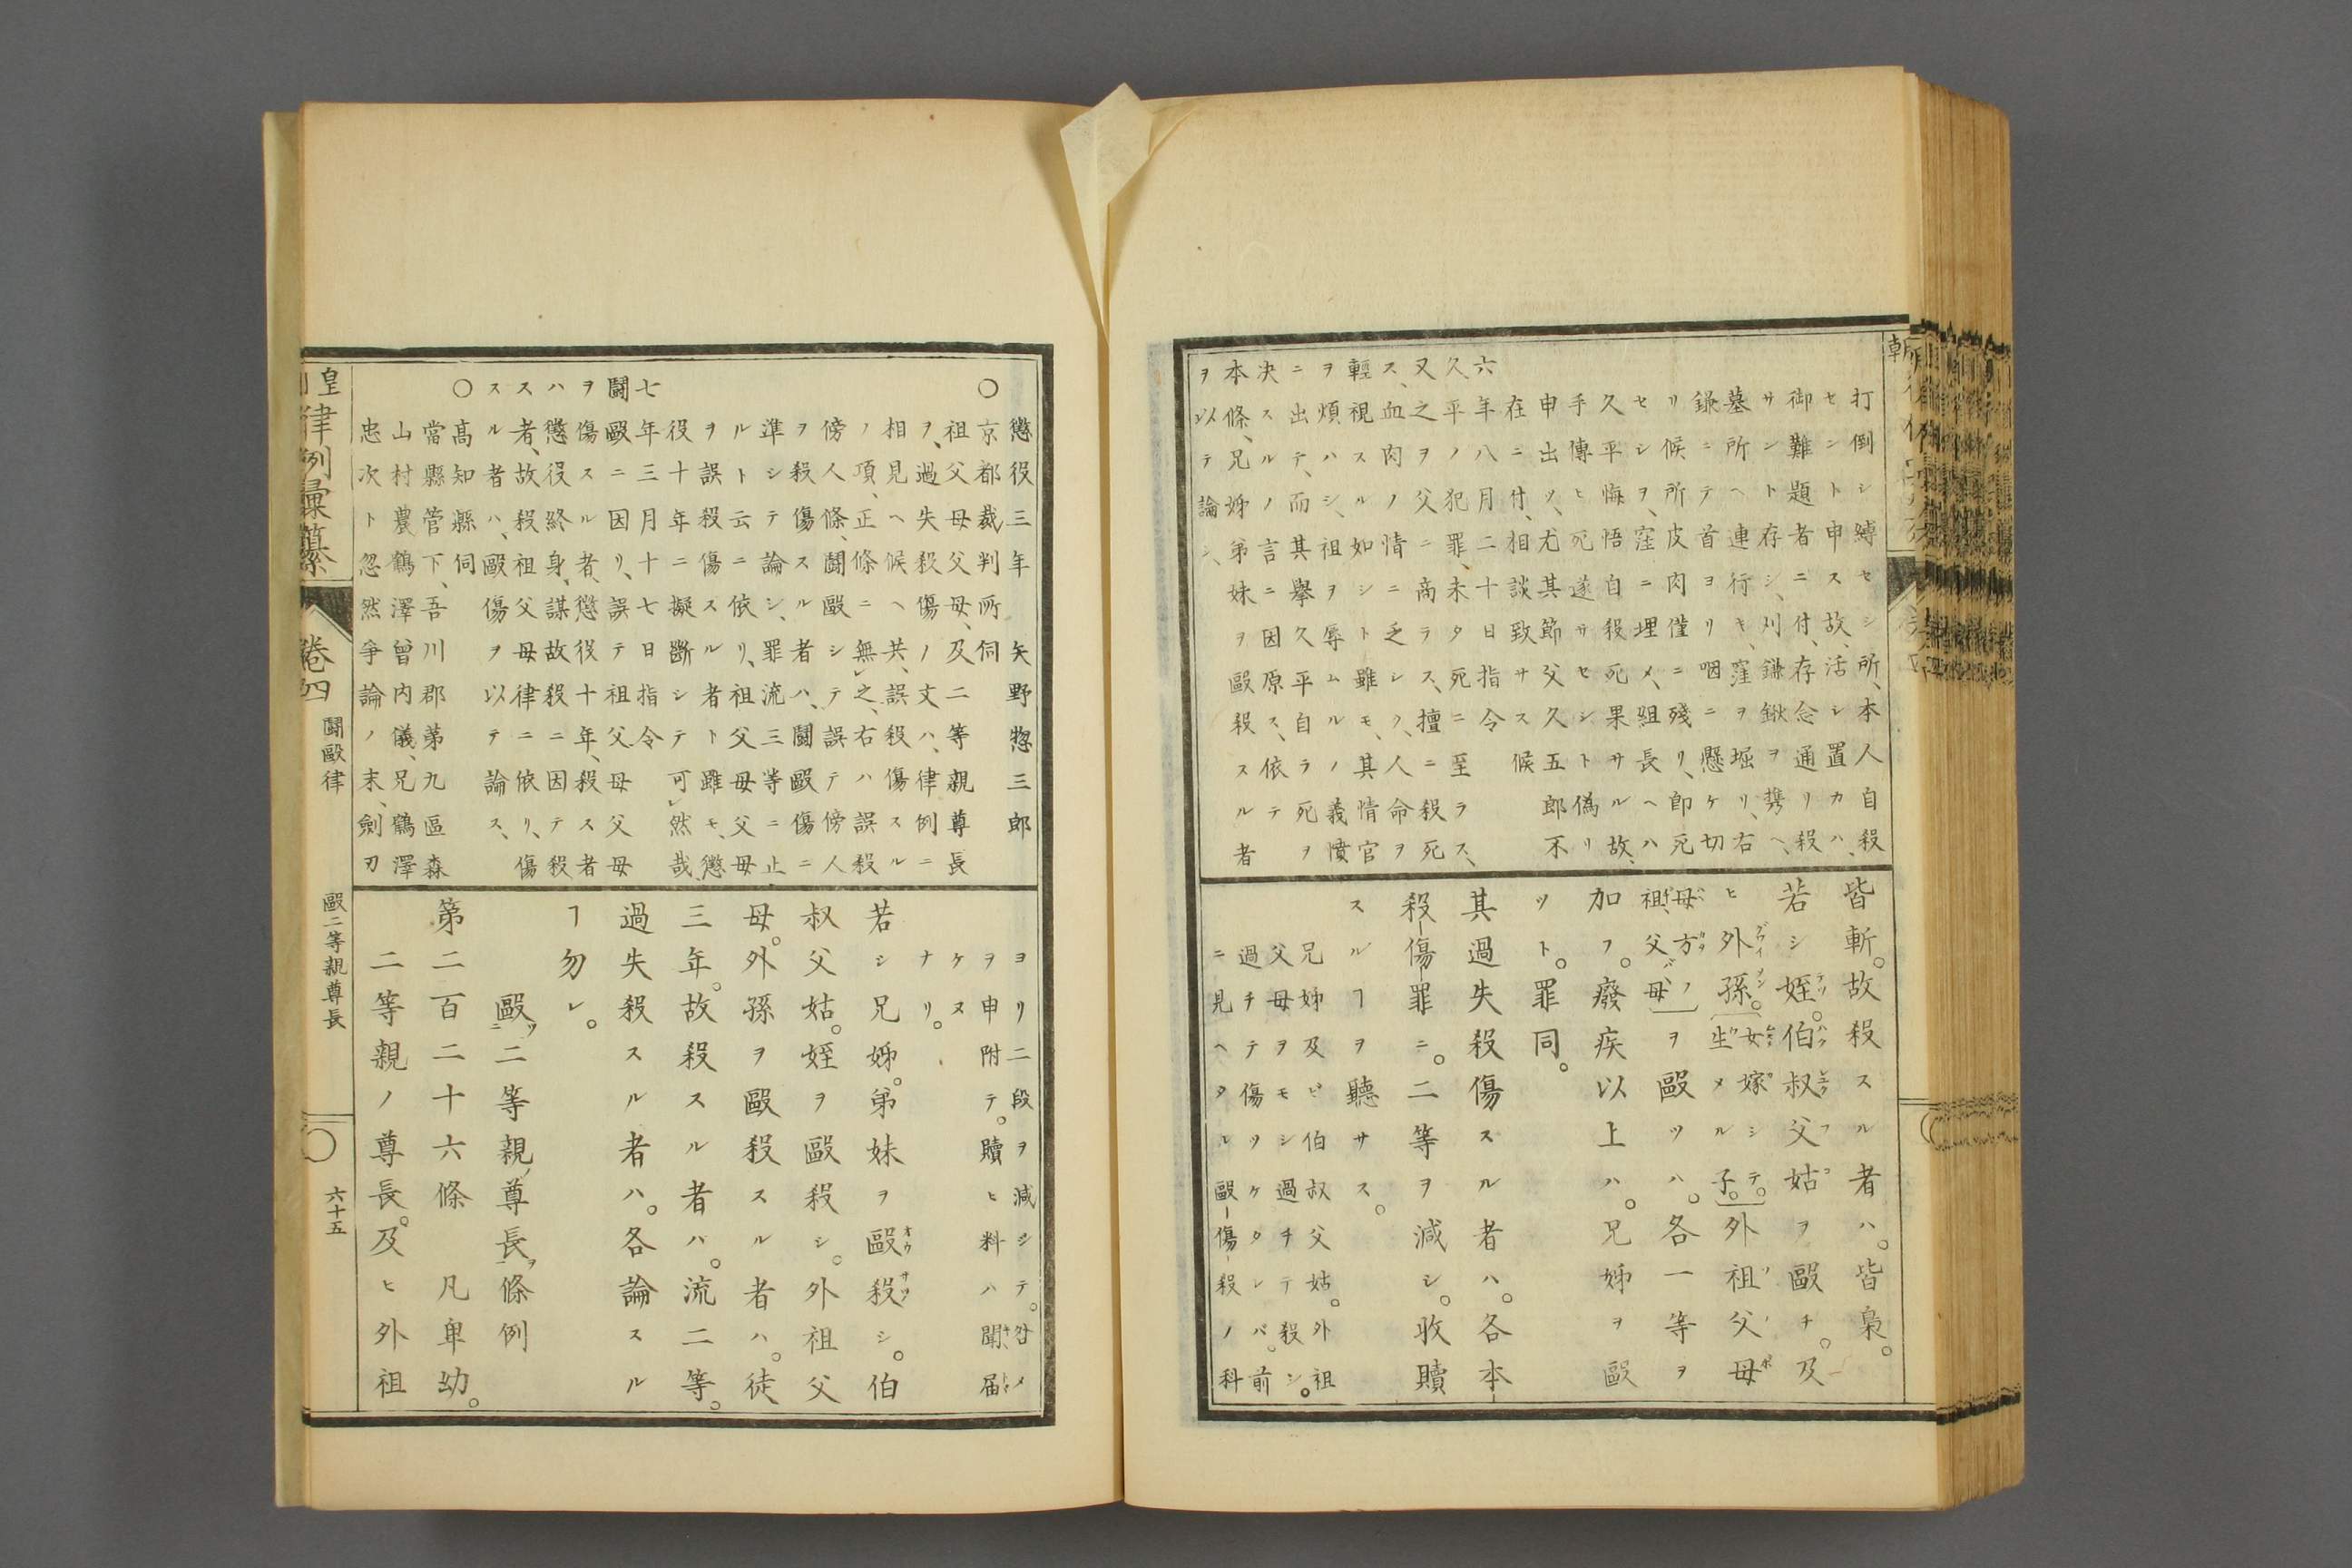 打倒シ縛セシ所、本人自殺
セント申ス故、活シ置カハ、
御難題者ニ付、存念通リ殺
サント存シ、刈鎌鍬ヲ携ヘ、
墓所ヘ連行キ、窪ヲ堀リ、右
鎌ニテ首ヨリ咽ニ懸ケ切
リ候所皮肉僅ニ殘リ、即死
セシヲ、窪ニ埋メ、組長ヘハ
久平悔悟自殺死果サル故、
手傳ヒ死遂サセシト僞リ
申出ツ、尤其節父久五郎不
在ニ付、相談致サス候
六年八月二十日指令
久平ノ犯罪、未タ死ニ至ラス、
又之ヲ父ニ商ラス、擅ニ殺死
ス、血肉ノ情ニ乏シク、人命ヲ
輕視スル如シト雖モ、其情官
ヲ煩ハシ、祖ヲ辱ムルノ義憤
ニ出テ、而其擧久平自ラ死ヲ
決スルノ言ニ因原ス、依テ
本條、兄姊弟妹ヲ毆殺スル者
ヲ以テ論シ、
皆斬。故殺スル者ハ。皆梟。
若シ姪。伯叔父姑ヲ毆チ。及
ヒ外孫。女嫁シテ。生メル子。外祖父母
母方ノ祖、父母ヲ毆ツハ。各一等ヲ
加フ。廢疾以上ハ。兄姊ヲ毆
ツト。罪同。
其過失殺傷スル者ハ。各本
殺傷罪ニ。二等ヲ減シ。收贖
スルヿヲ聽サス。
兄姊及ビ伯叔父姑。外祖
父母ヲモシ過チテ殺シ。
過チテ傷ツケタレバ。前
ニ見ヘタル毆傷殺ノ科
懲役三年 矢野惣三郎
○京都裁判所伺
祖父母父母、及二等親尊長
ヲ、過失殺傷ノ文ハ、律例ニ
相見ヘ候ヘ共、誤殺傷スル
ノ項、正條ニ無レ之、右ハ誤殺
傍人條、鬪毆シテ誤テ傍人
ヲ殺傷スル者ハ、鬪毆傷ニ
準シテ論シ、罪流三等ニ止
ルト云ニ依リ、祖父母父母
ヲ誤殺傷スル者ト雖モ、懲
役十年ニ擬斷シテ可レ然哉、
七年三月十七日指令
鬪毆ニ因リ、誤テ祖父母父母
ヲ傷スル者、懲役十年、殺ス者
ハ懲役終身、謀故殺ニ因テ殺
ス者、故殺祖父母律ニ依リ、傷
スル者ハ、毆傷ヲ以テ論ス、
○高知縣伺
當縣管下、吾川郡第九區森
山村農鶴澤曾内儀、兄鶴澤
忠次ト忽然爭論ノ末、劍刃
ヨリ二段ヲ減シテ。咎メ
ヲ申附テ。贖ヒ料ハ聞届
ケヌ
ナリ。
若シ兄姊。弟妹ヲ毆殺シ。伯
叔父姑。姪ヲ毆殺シ。外祖父
母。外孫ヲ毆殺スル者ハ。徒
三年。故殺スル者バ。流二等。
過失殺スル者ハ。各論スル
ヿ勿レ。
毆二等親尊長條例
第二百二十六條 凡卑幼。
二等親ノ尊長。及ヒ外祖
皇
律例彙纂 卷四 鬪毆律 毆二等親尊長 六十五